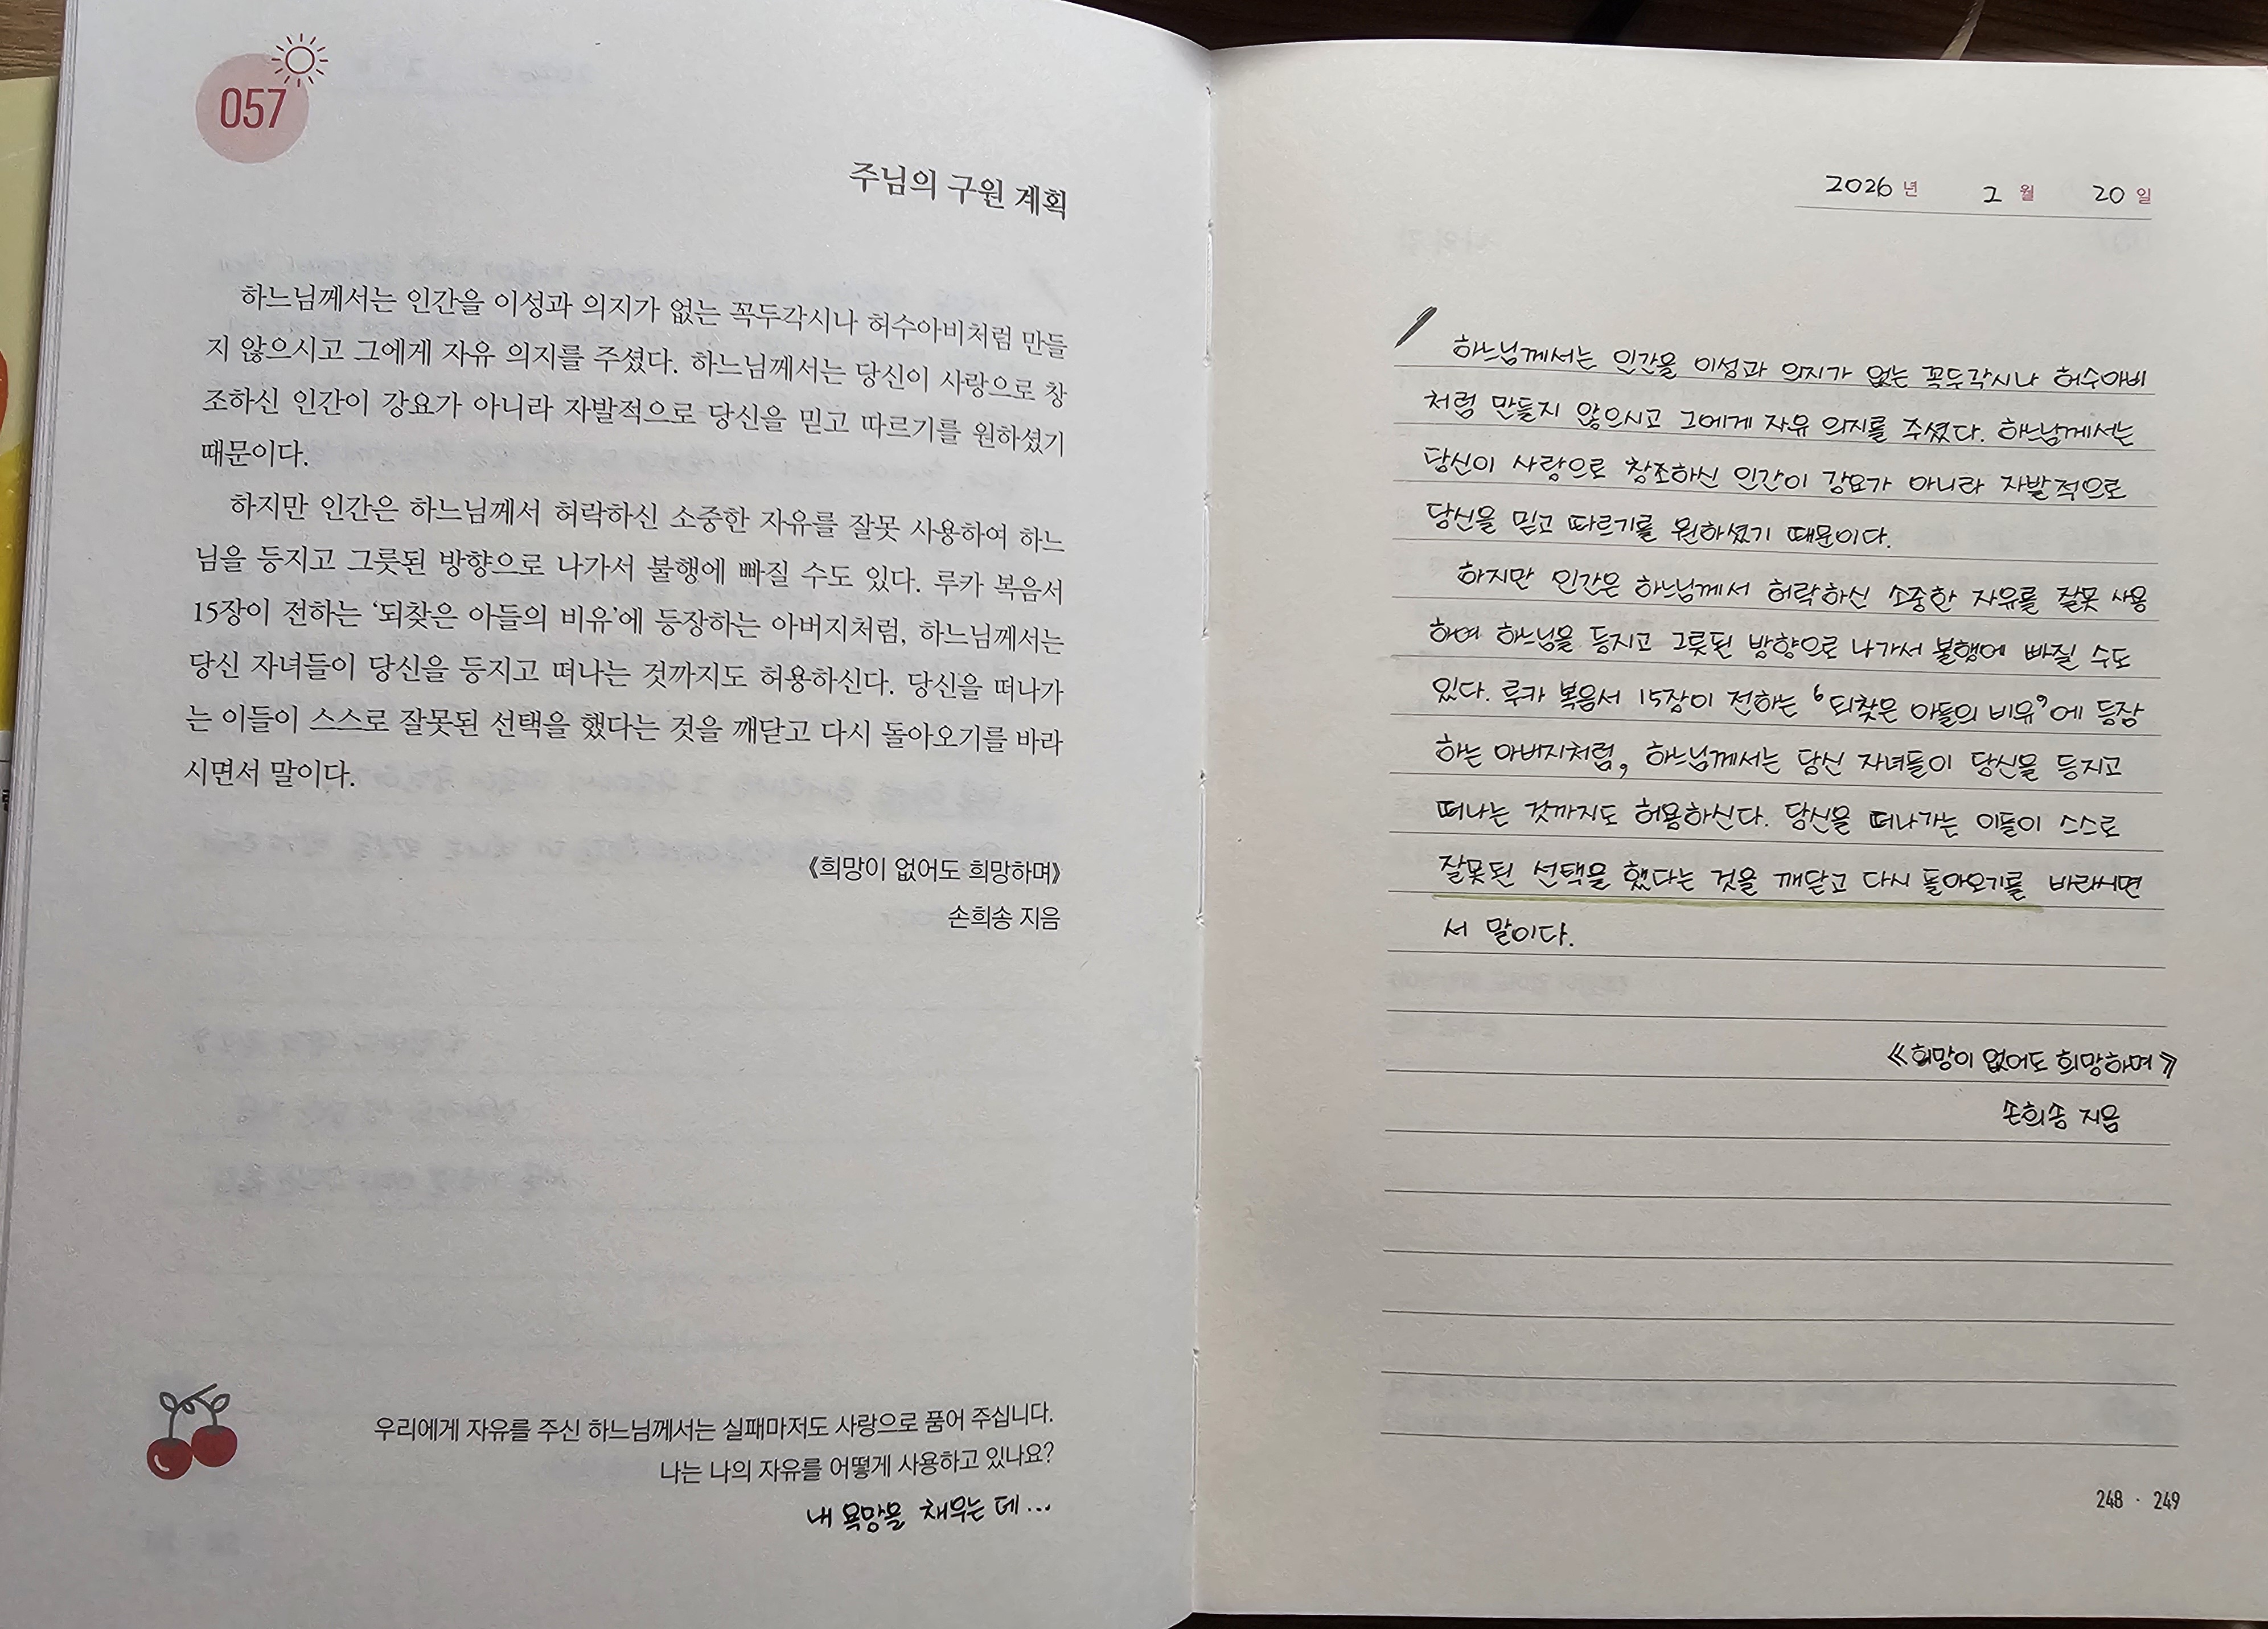 057
주님의 구원 계획
하느님께서는 인간을 이성과 의지가 없는 꼭두각시나 허수아비처럼 만들
지 않으시고 그에게 자유 의지를 주셨다. 하느님께서는 당신이 사랑으로 창
조하신 인간이 강요가 아니라 자발적으로 당신을 믿고 따르기를 원하셨기
때문이다.
하지만 인간은 하느님께서 허락하신 소중한 자유를 잘못 사용하여 하느
님을 등지고 그릇된 방향으로 나가서 불행에 빠질 수도 있다. 루카 복음서
15장이 전하는 ‘되찾은 아들의 비유’에 등장하는 아버지처럼, 하느님께서는
당신 자녀들이 당신을 등지고 떠나는 것까지도 허용하신다. 당신을 떠나가
는 이들이 스스로 잘못된 선택을 했다는 것을 깨닫고 다시 돌아오기를 바라
시면서 말이다.
《희망이 없어도 희망하며》
손희송 지음
우리에게 자유를 주신 하느님께서는 실패마저도 사랑으로 품어 주십니다.
나는 나의 자유를 어떻게 사용하고 있나요?
내 욕망을 채우는 데...
2026년 2월 20일
하느님께서는 인간을 이성과 의지가 없는 꼭두각시나 허수아비
처럼 만들지 않으시고 그에게 자유 의지를 주셨다. 하느님께서는
당신이 사랑으로 창조하신 인간이 강요가 아니라 자발적으로
당신을 믿고 따르기를 원하셨기 때문이다.
하지만 인간은 하느님께서 허락하신 소중한 자유를 잘못 사용
하여 하느님을 등지고 그릇된 방향으로 나가서 불행에 빠질 수도
있다. 루카 복음서 15장이 전하는 ‘되찾은 아들의 비유’에 등장
하는 아버지처럼, 하느님께서는 당신 자녀들이 당신을 등지고
떠나는 것까지도 허용하신다. 당신을 떠나가는 이들이 스스로
잘못된 선택을 했다는 것을 깨닫고 다시 돌아오기를 바라시면
서 말이다.
《희망이 없어도 희망하며》
손희송 지음
248 · 249